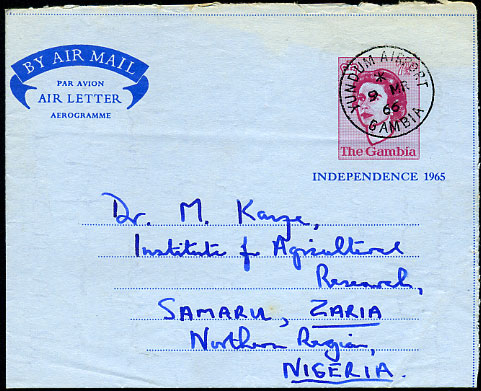 BY AIR MAIL
PAR AVION
AIR LETTER
AEROGRAMME
YUNDUM AIRPORT
* 
9 MR
66
GAMBIA
The Gambia
INDEPENDENCE 1965
Dr. M. Kanze,
Institute for Agricultural
Research,
SAMARU, ZARIA
Northern Region,
NIGERIA.